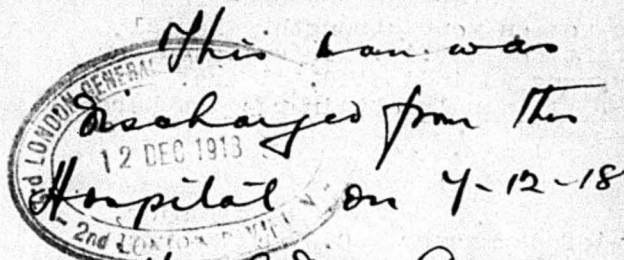 This man was
discharged from this
Hospital on 7-12-18
2nd LONDON GENERAL
12 DEC 1918
2nd LONDON